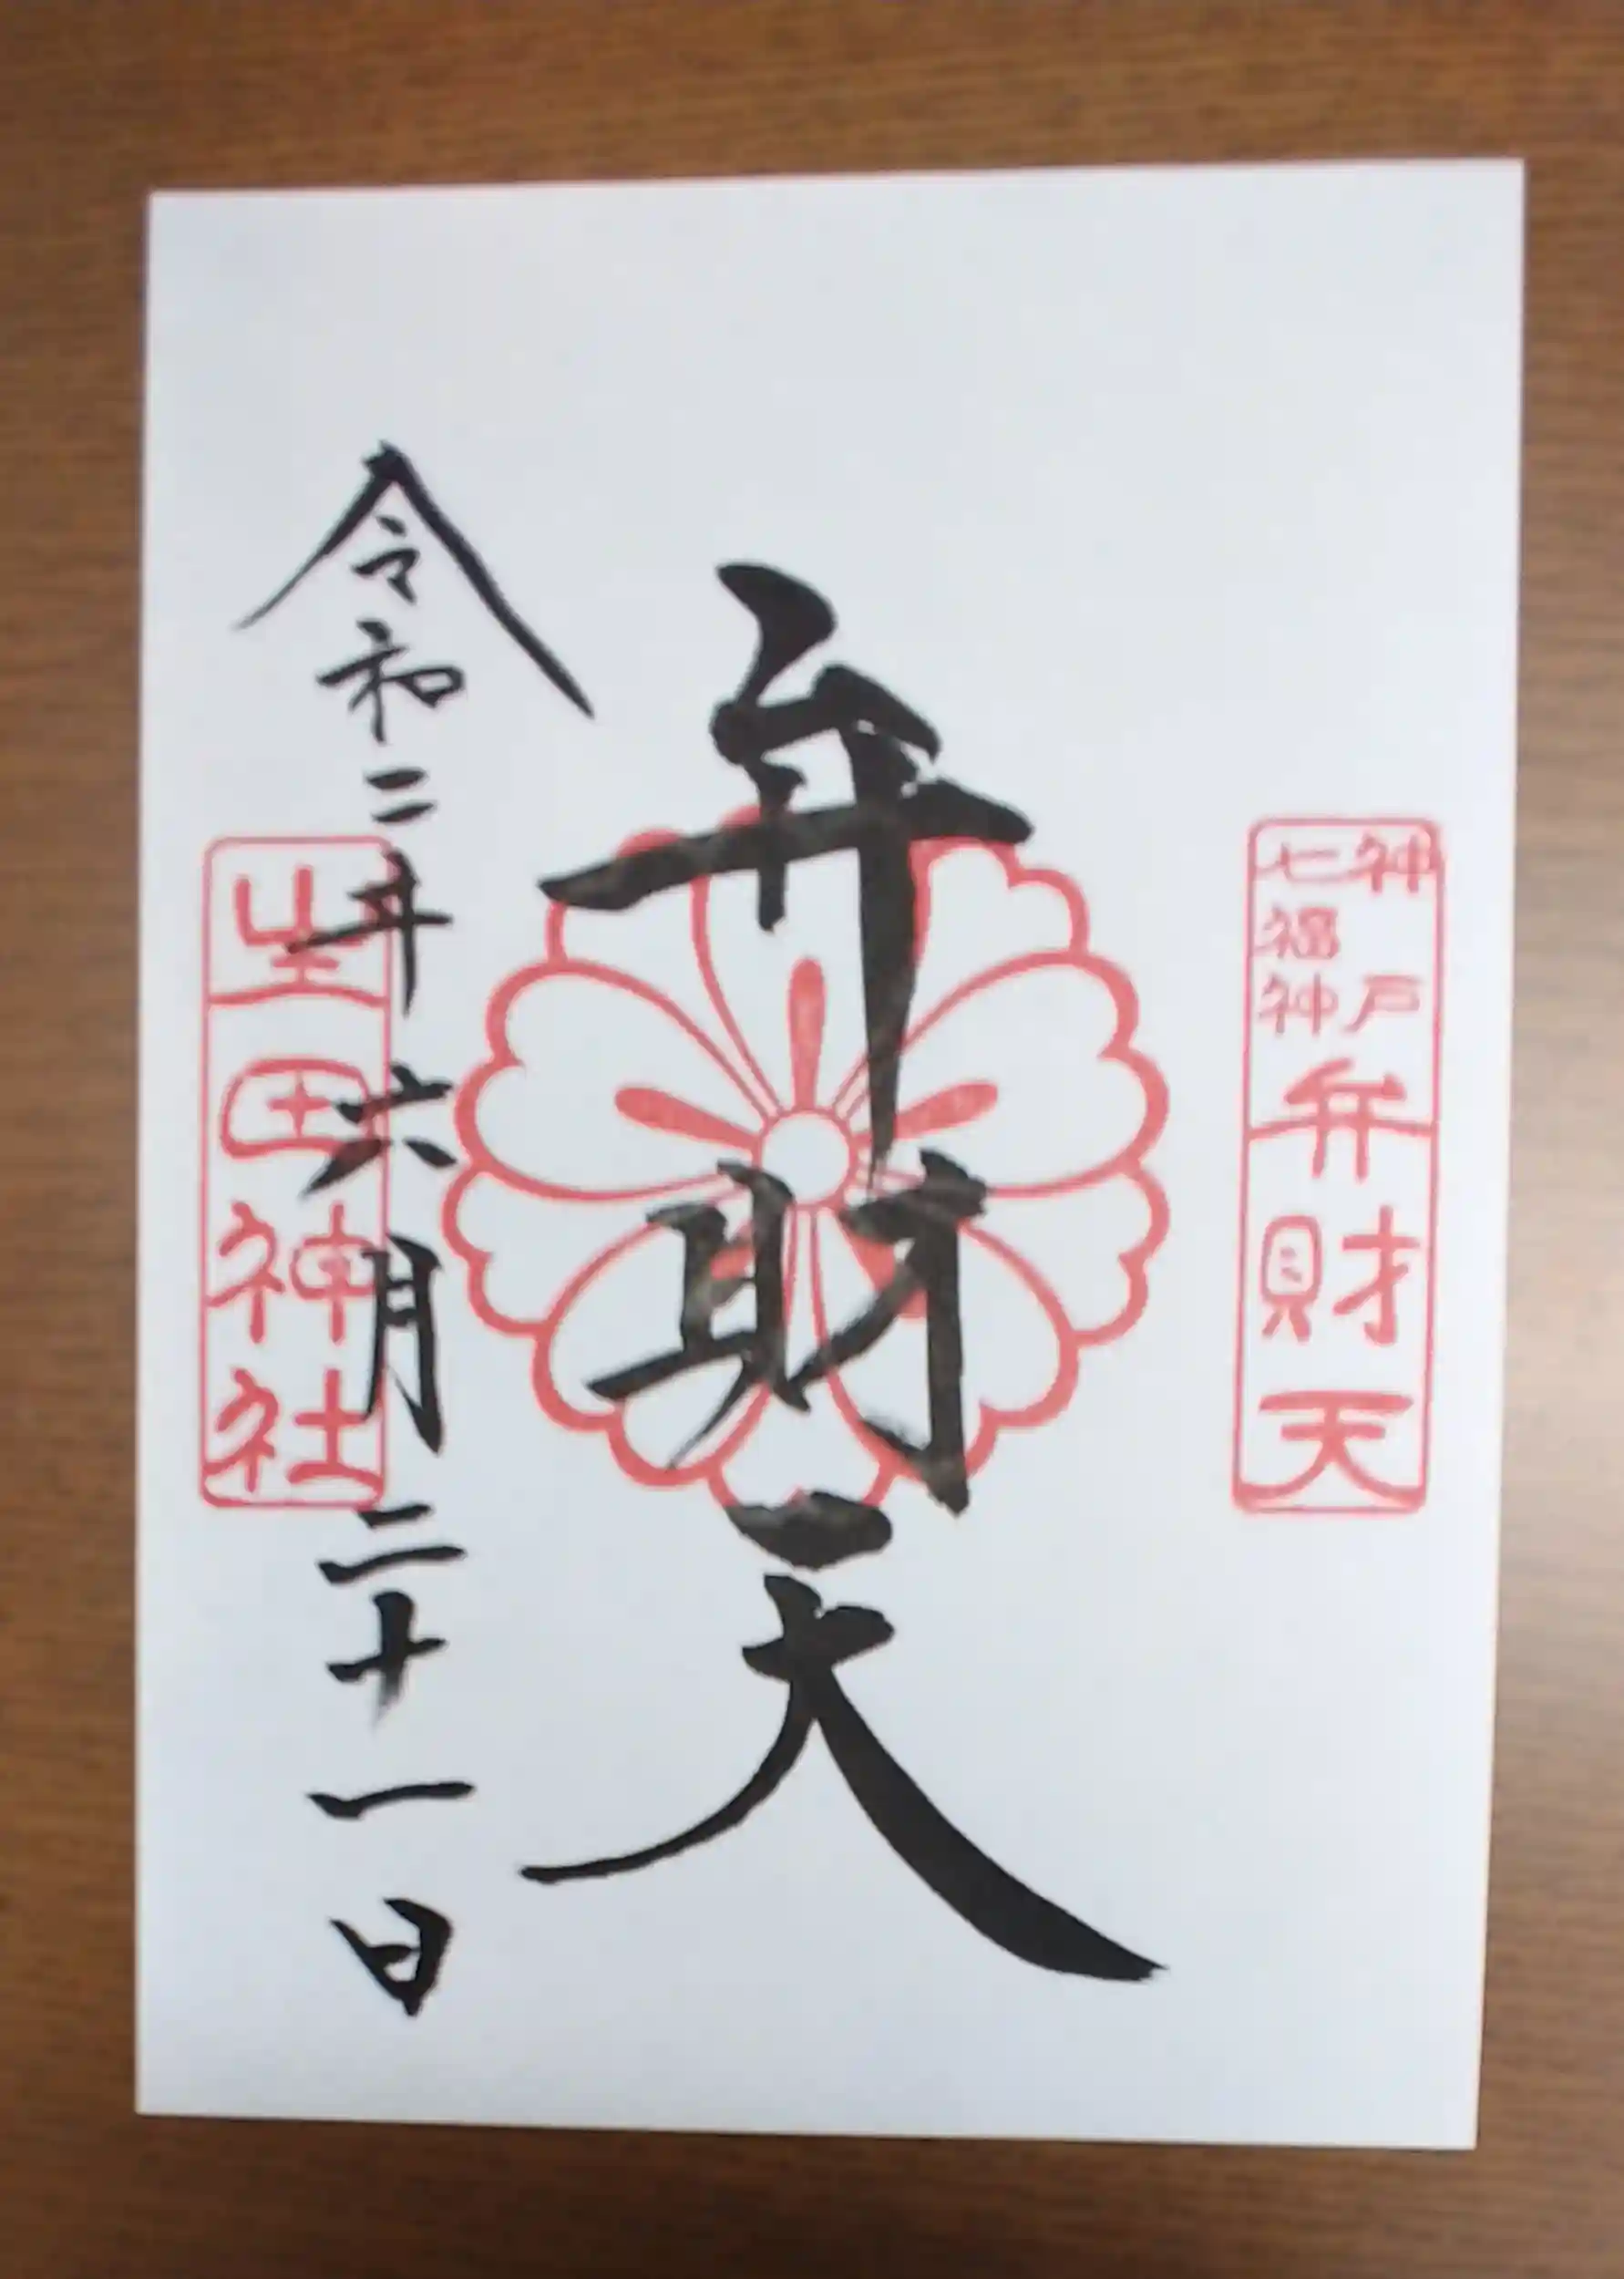 神戸
七福神
弁財天
弁財天
令和二年六月二十一日
生田神社